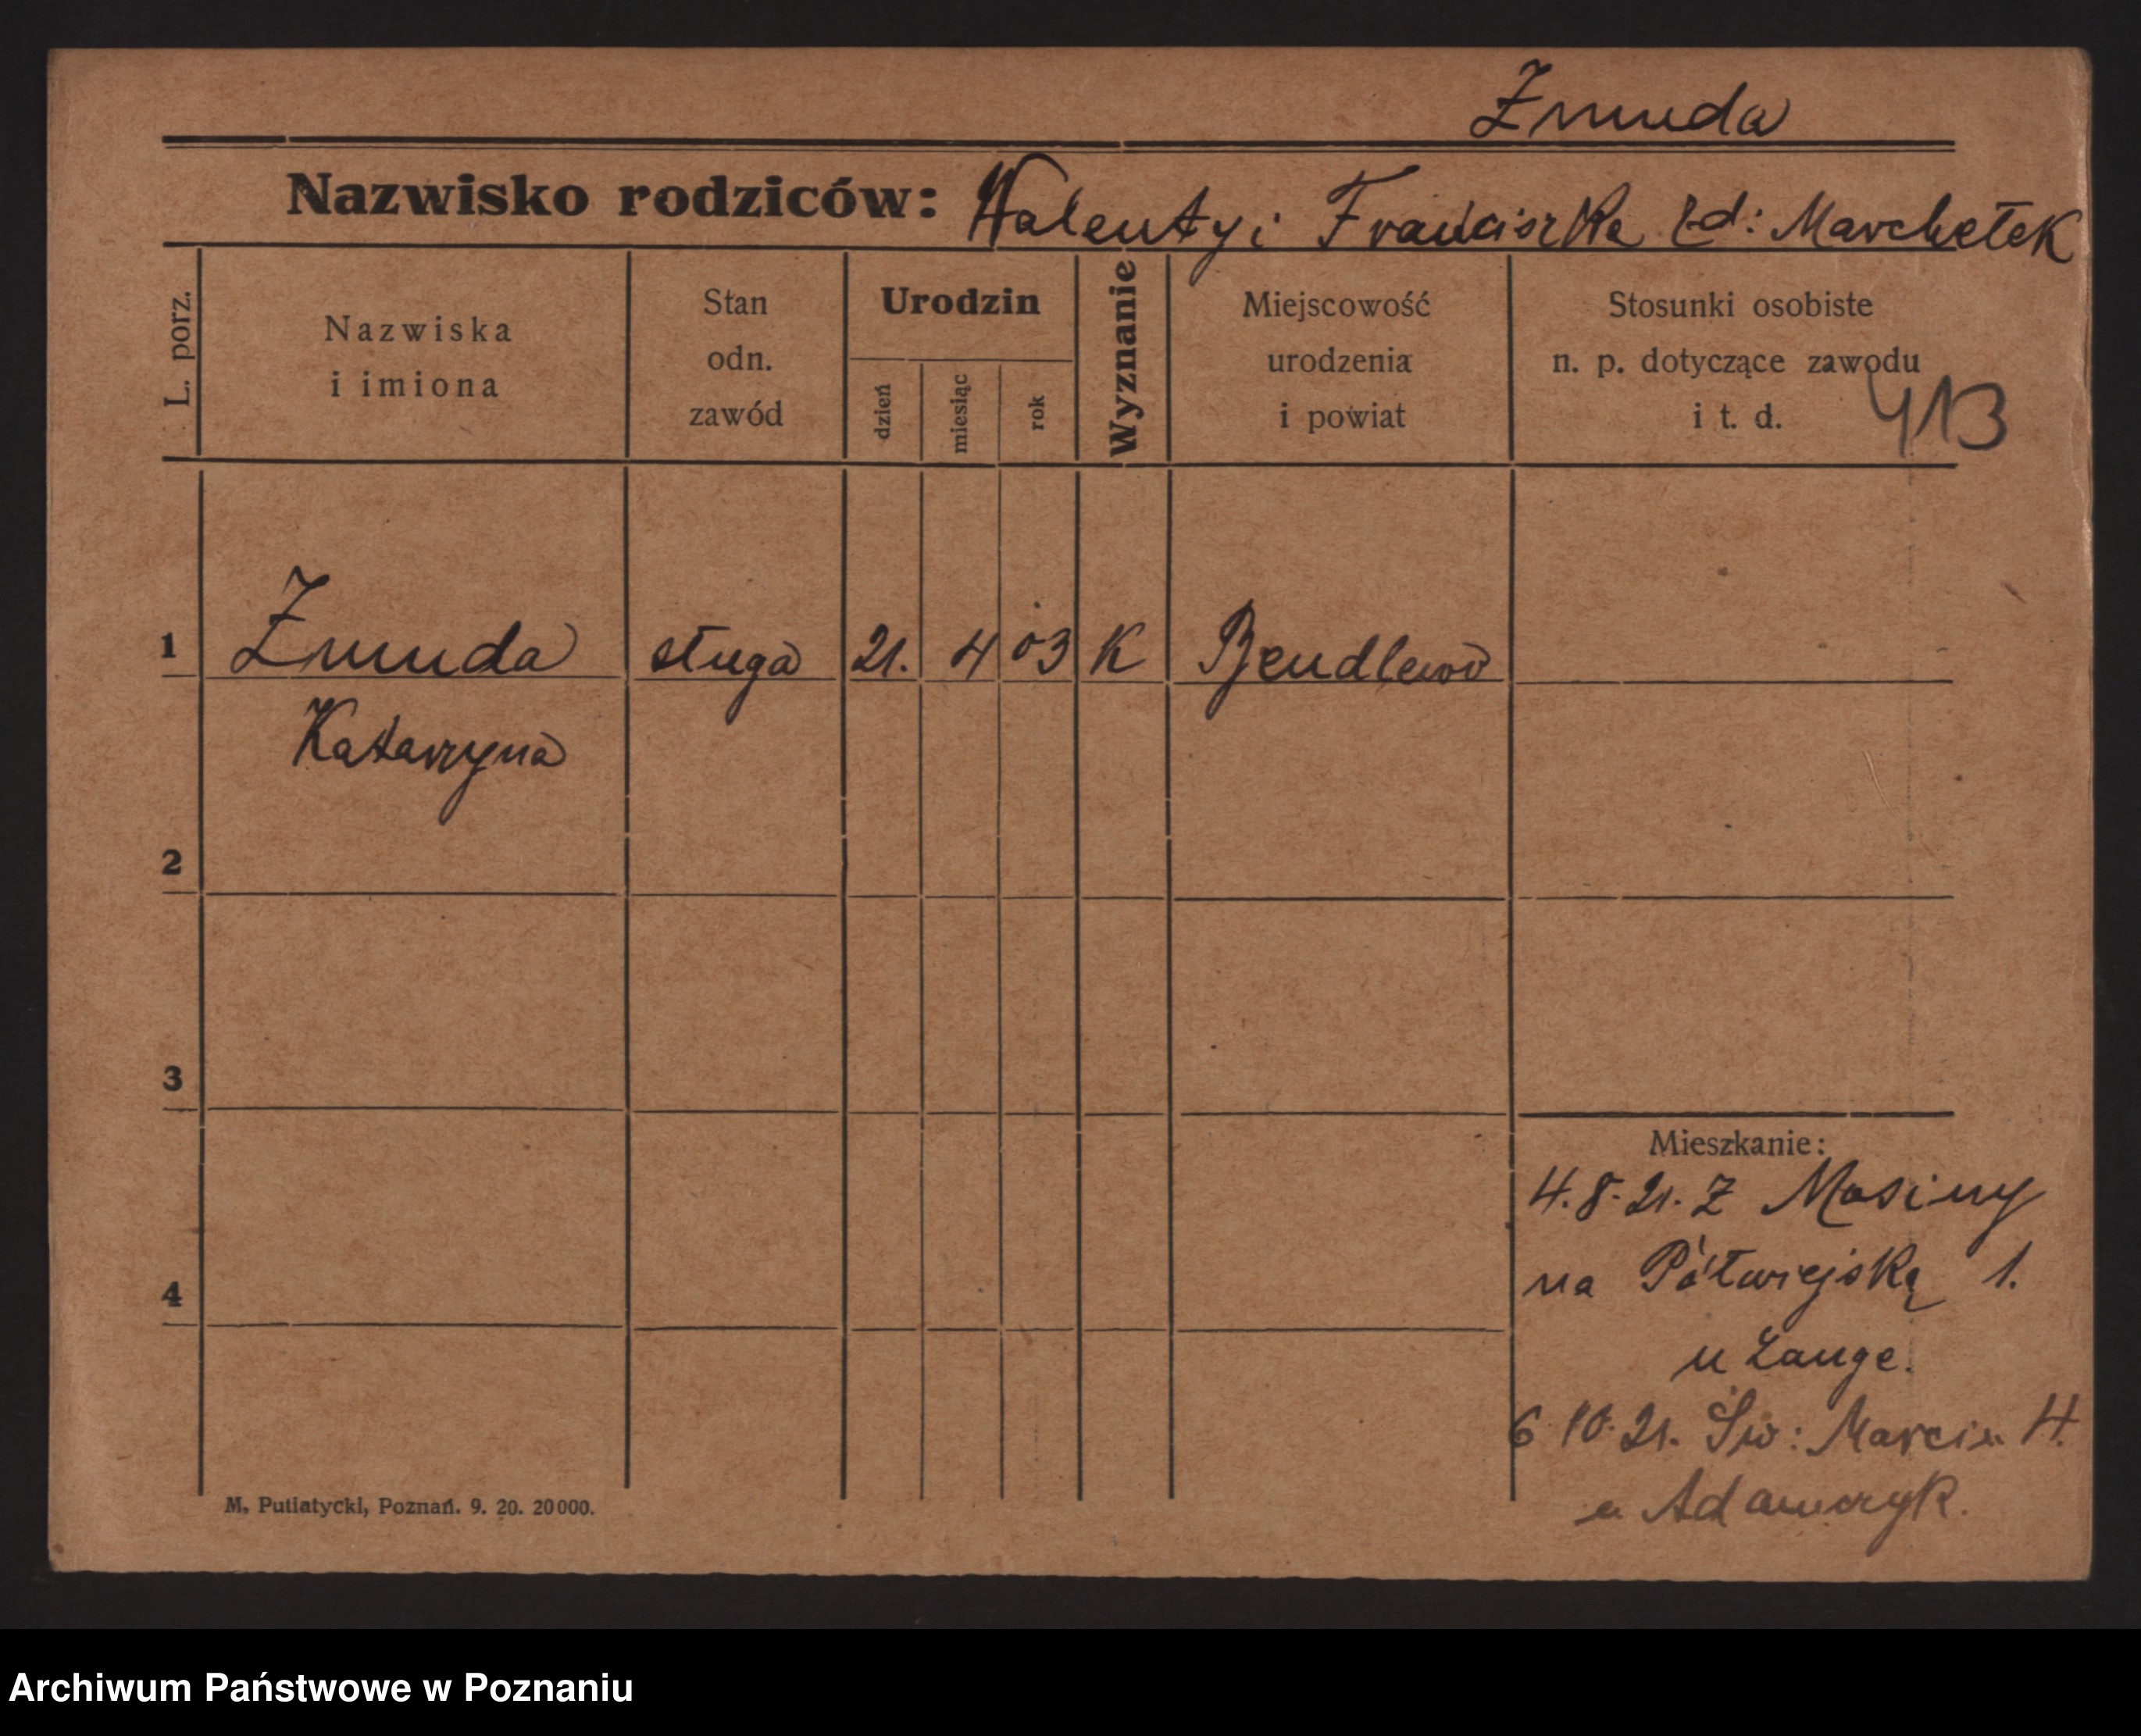 Żmuda
Nazwisko rodziców: Walenty i Franciszka zd: Marchełek
L. porz.
Nazwiska
i imiona
Stan
odn.
zawód
Urodzin
dzień
miesiąc
rok
Wyznanie
Miejscowość
urodzenia
i powiat
Stosunki osobiste
n. p. dotyczące zawodu
i t. d.
413
1 Żmuda sługa 21. 4 03 K Bendlewo
Katarzyna
2
3
4
Mieszkanie:
4.8.21. z Mosiny
na Półwiejską 1.
u Lange.
6 10.21. Św: Marcin 4.
u Adamczyk.
M. Putiatycki, Poznań. 9. 20. 20000.
Archiwum Państwowe w Poznaniu